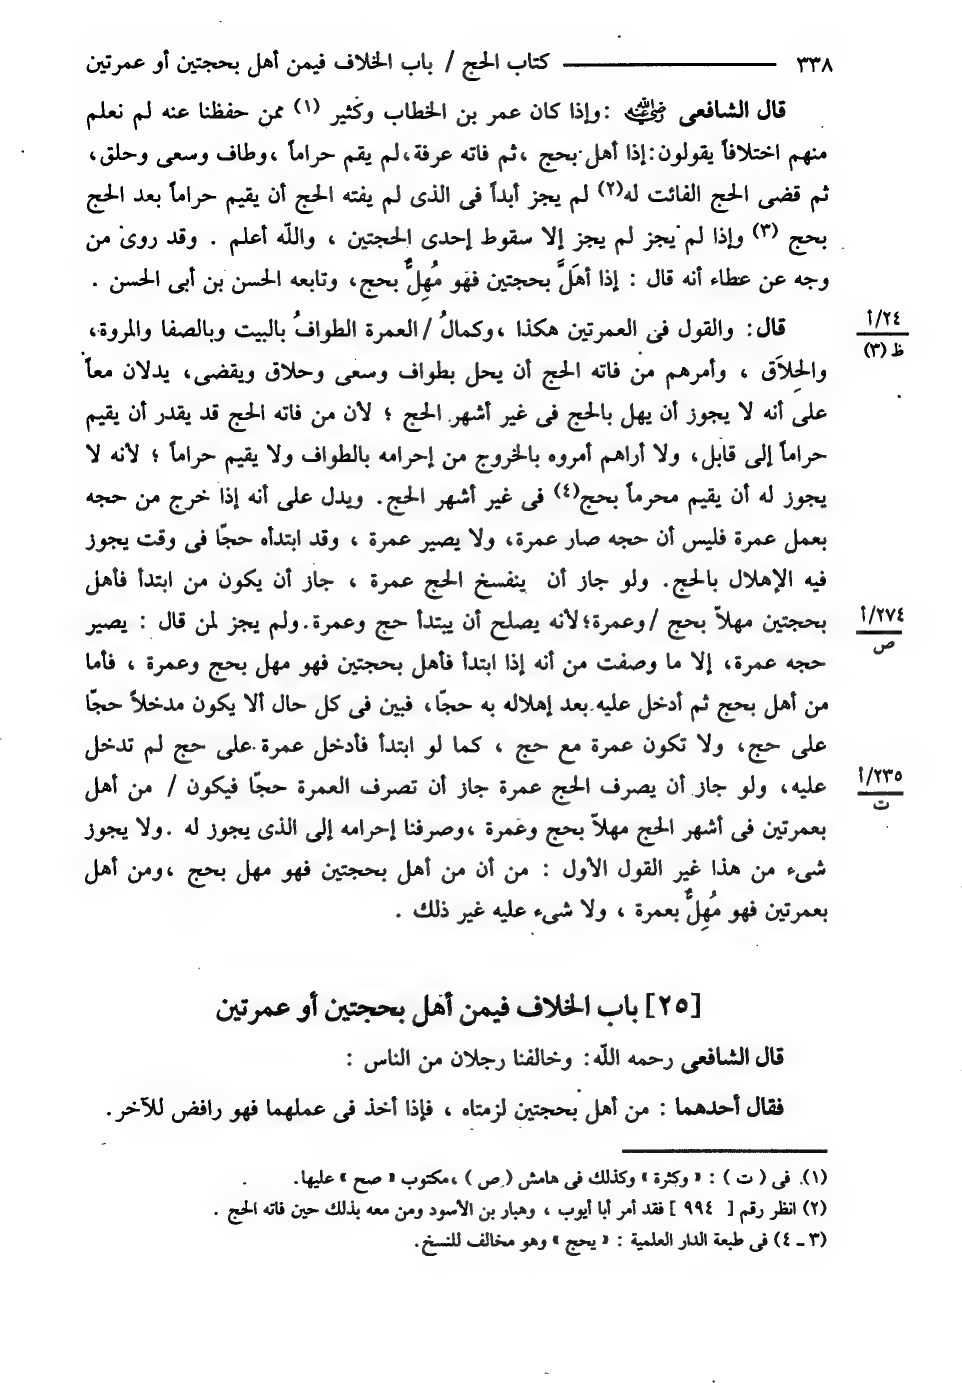 ٣٣٨ ــــــــــــ كتاب الحج / باب الخلاف فيمن أهل بحجتين أو عمرتين
قال الشافعى رضي الله عنه : وإذا كان عمر بن الخطاب وكثير (١) ممن حفظنا عنه لم نعلم
منهم اختلافاً يقولون: إذا أهل بحج ، ثم فاته عرفة، لم يقم حراماً ، وطاف وسعى وحلق،
ثم قضى الحج الفائت له(٢) لم يجز أبداً فى الذى لم يفته الحج أن يقيم حراماً بعد الحج
بحج (٣) وإذا لم يجز لم يجز إلا سقوط إحدى الحجتين ، والله أعلم . وقد روى من
وجه عن عطاء أنه قال : إذا أهَلَّ بحجتين فهو مُهِلٌّ بحج، وتابعه الحسن بن أبى الحسن .
قال: والقول فى العمرتين هكذا ، وكمالُ / العمرة الطوافُ بالبيت وبالصفا والمروة،
٢٤/أ
ظ (٣)
والحِلاَق ، وأمرهم من فاته الحج أن يحل بطواف وسعى وحلاق ويقضى، يدلان معاً
على أنه لا يجوز أن يهل بالحج فى غير أشهر الحج ؛ لأن من فاته الحج قد يقدر أن يقيم
حراماً إلى قابل، ولا أراهم أمروه بالخروج من إحرامه بالطواف ولا يقيم حراماً ؛ لأنه لا
يجوز له أن يقيم محرماً بحج(٤) فى غير أشهر الحج. ويدل على أنه إذا خرج من حجه
بعمل عمرة فليس أن حجه صار عمرة، ولا يصير عمرة ، وقد ابتدأه حجًا فى وقت يجوز
فيه الإهلال بالحج. ولو جاز أن ينفسخ الحج عمرة ، جاز أن يكون من ابتدأ فأهل
بحجتين مهلاً بحج / وعمرة؛ لأنه يصلح أن يبتدأ حج وعمرة. ولم يجز لمن قال : يصير
٢٧٤/أ
ص
حجه عمرة، إلا ما وصفت من أنه إذا ابتدأ فأهل بحجتين فهو مهل بحج وعمرة ، فأما
من أهل بحج ثم أدخل عليه بعد إهلاله به حجًا، فبين فى كل حال ألا يكون مدخلاً حجًا
على حج، ولا تكون عمرة مع حج ، كما لو ابتدأ فأدخل عمرة على حج لم تدخل
عليه، ولو جاز أن يصرف الحج عمرة جاز أن تصرف العمرة حجًا فيكون / من أهل
٢٣٥/أ
ت
بعمرتين فى أشهر الحج مهلاً بحج وعمرة ، وصرفنا إحرامه إلى الذى يجوز له . ولا يجوز
شىء من هذا غير القول الأول : من أن من أهل بحجتين فهو مهل بحج ، ومن أهل
بعمرتين فهو مُهِلٌّ بعمرة ، ولا شىء عليه غير ذلك .
[٢٥] باب الخلاف فيمن أهل بحجتين أو عمرتين
قال الشافعى رحمه الله: وخالفنا رجلان من الناس :
فقال أحدهما : من أهل بحجتين لزمتاه ، فإذا أخذ فى عملهما فهو رافض للآخر.
(١) فى ( ت ) : « وكثرة » وكذلك فى هامش ( ص ) ، مكتوب « صح » عليها.
(٢) انظر رقم [ ٩٩٤ ] فقد أمر أبا أيوب ، وهبار بن الأسود ومن معه بذلك حين فاته الحج .
(٣ ـ ٤) فى طبعة الدار العلمية : « يحج » وهو مخالف للنسخ.